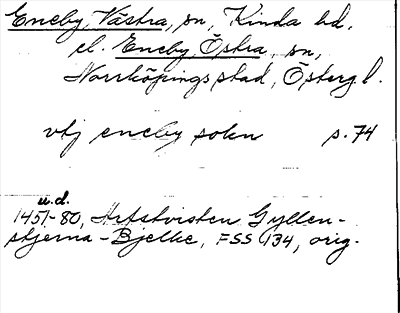 Eneby Västra, sn, Kinda hd,
el. Eneby, Östra, sn,
Norrköpings stad, Östergl.
vtj eneby sokn s. 74
u.d.
1451-80, Arvstvisten Gyllen-
stjerna-Bjelke, FSS 134, orig.